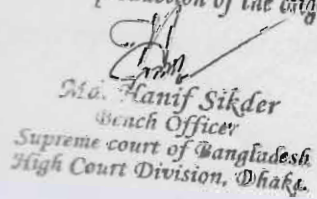 of the
Md. Hanif Sikder
Bench Officer
Supreme court of Bangladesh
High Court Division, Dhaka.